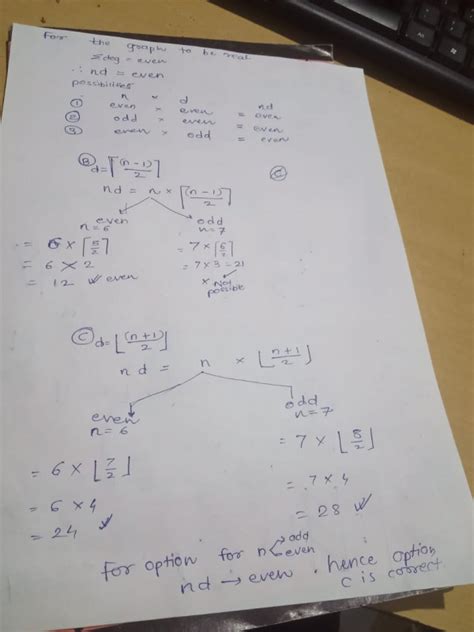 For the graph to be real
Σdeg = even
∴ nd = even
possibilities
n × d nd
① even × even = even
② odd × even = even
③ even × odd = even
Ⓑ d= ⌈(n-1)/2⌉
nd = n × ⌈(n-1)/2⌉
even odd
n=6 n=7
= 6 × ⌈5/2⌉ = 7 × ⌈6/2⌉
= 6 × 2 = 7 × 3 = 21
= 12 ✓ even × Not possible
Ⓒ d= ⌊(n+1)/2⌋
nd = n × ⌊n+1/2⌋
even odd
n=6 n=7
= 6 × ⌊7/2⌋ = 7 × ⌊8/2⌋
= 6 × 4 = 7 × 4
= 24 ✓ = 28 ✓
For option for n odd even
nd → even . hence option C is correct